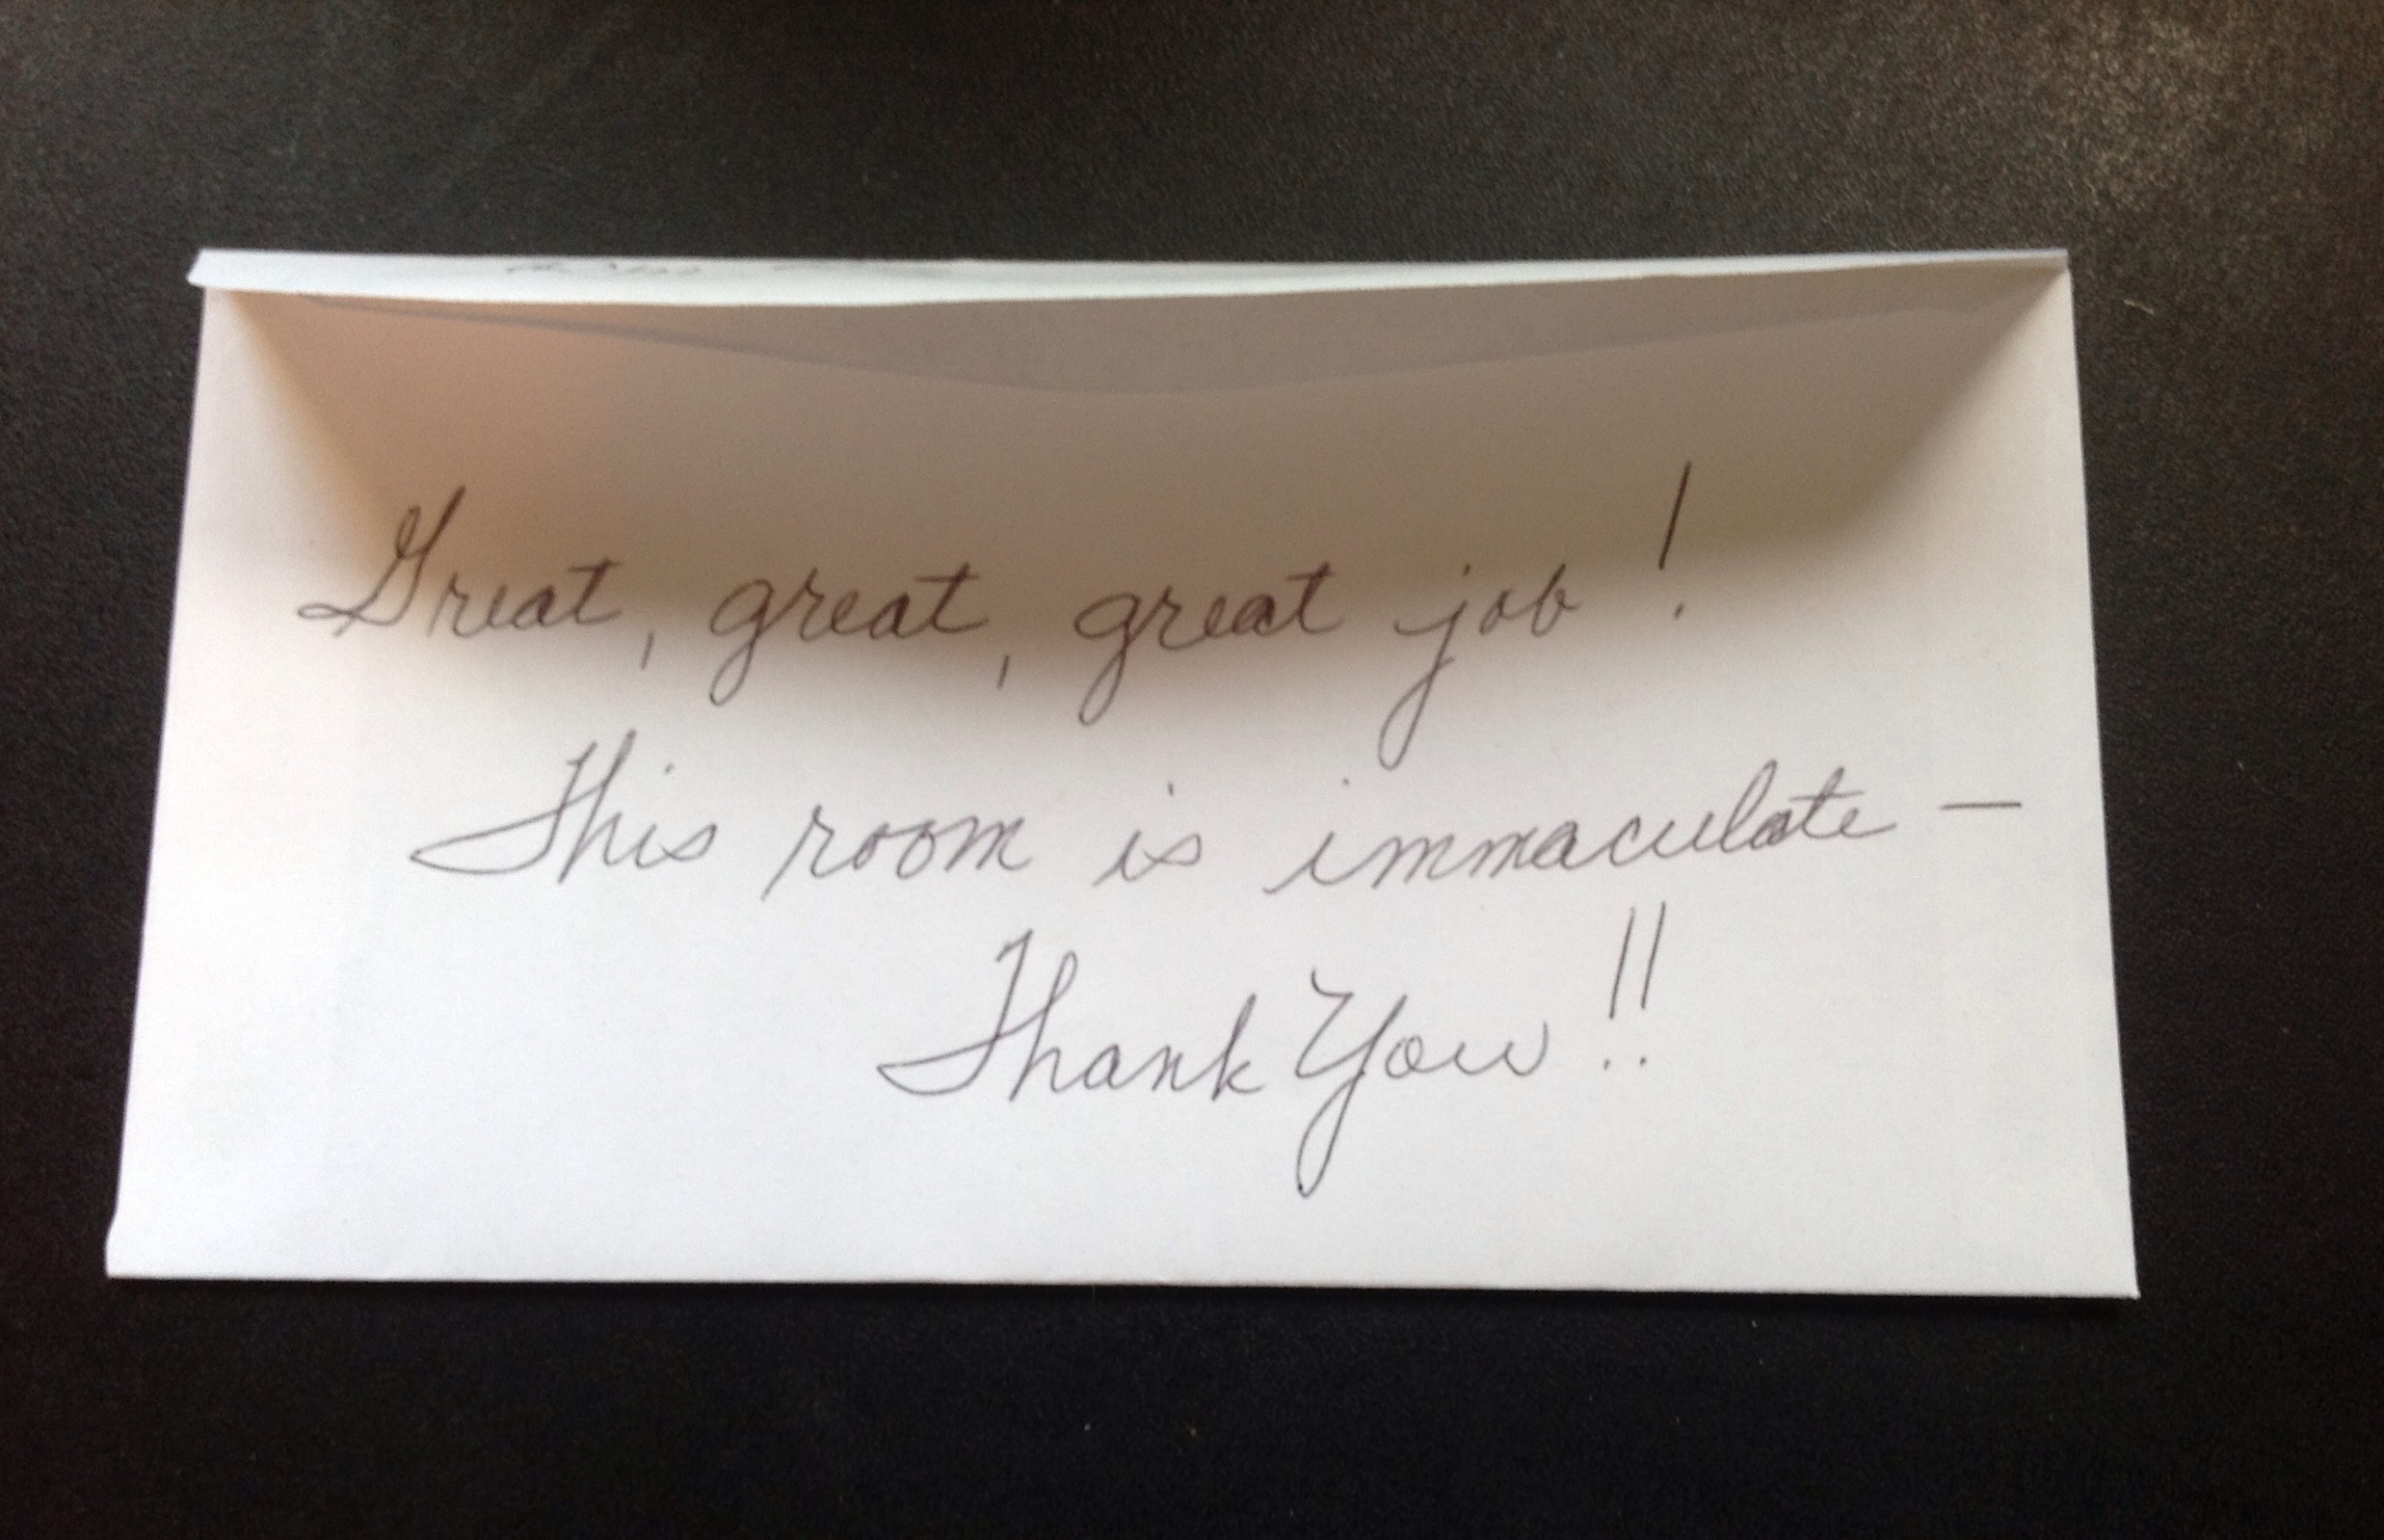 Great, great, great job!
This room is immaculate —
Thank You!!